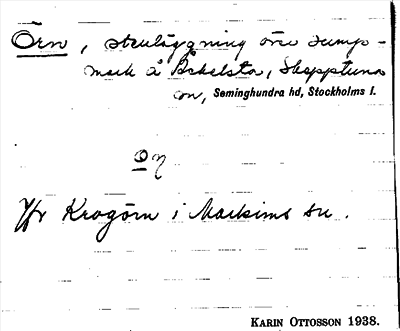 Örn, stenläggning över sump-
mark å Åckelsta, Skepptuna
sn, Seminghundra hd, Stockholms l.
Jfr Krogörn i Markims sn.
KARIN OTTOSSON 1938.